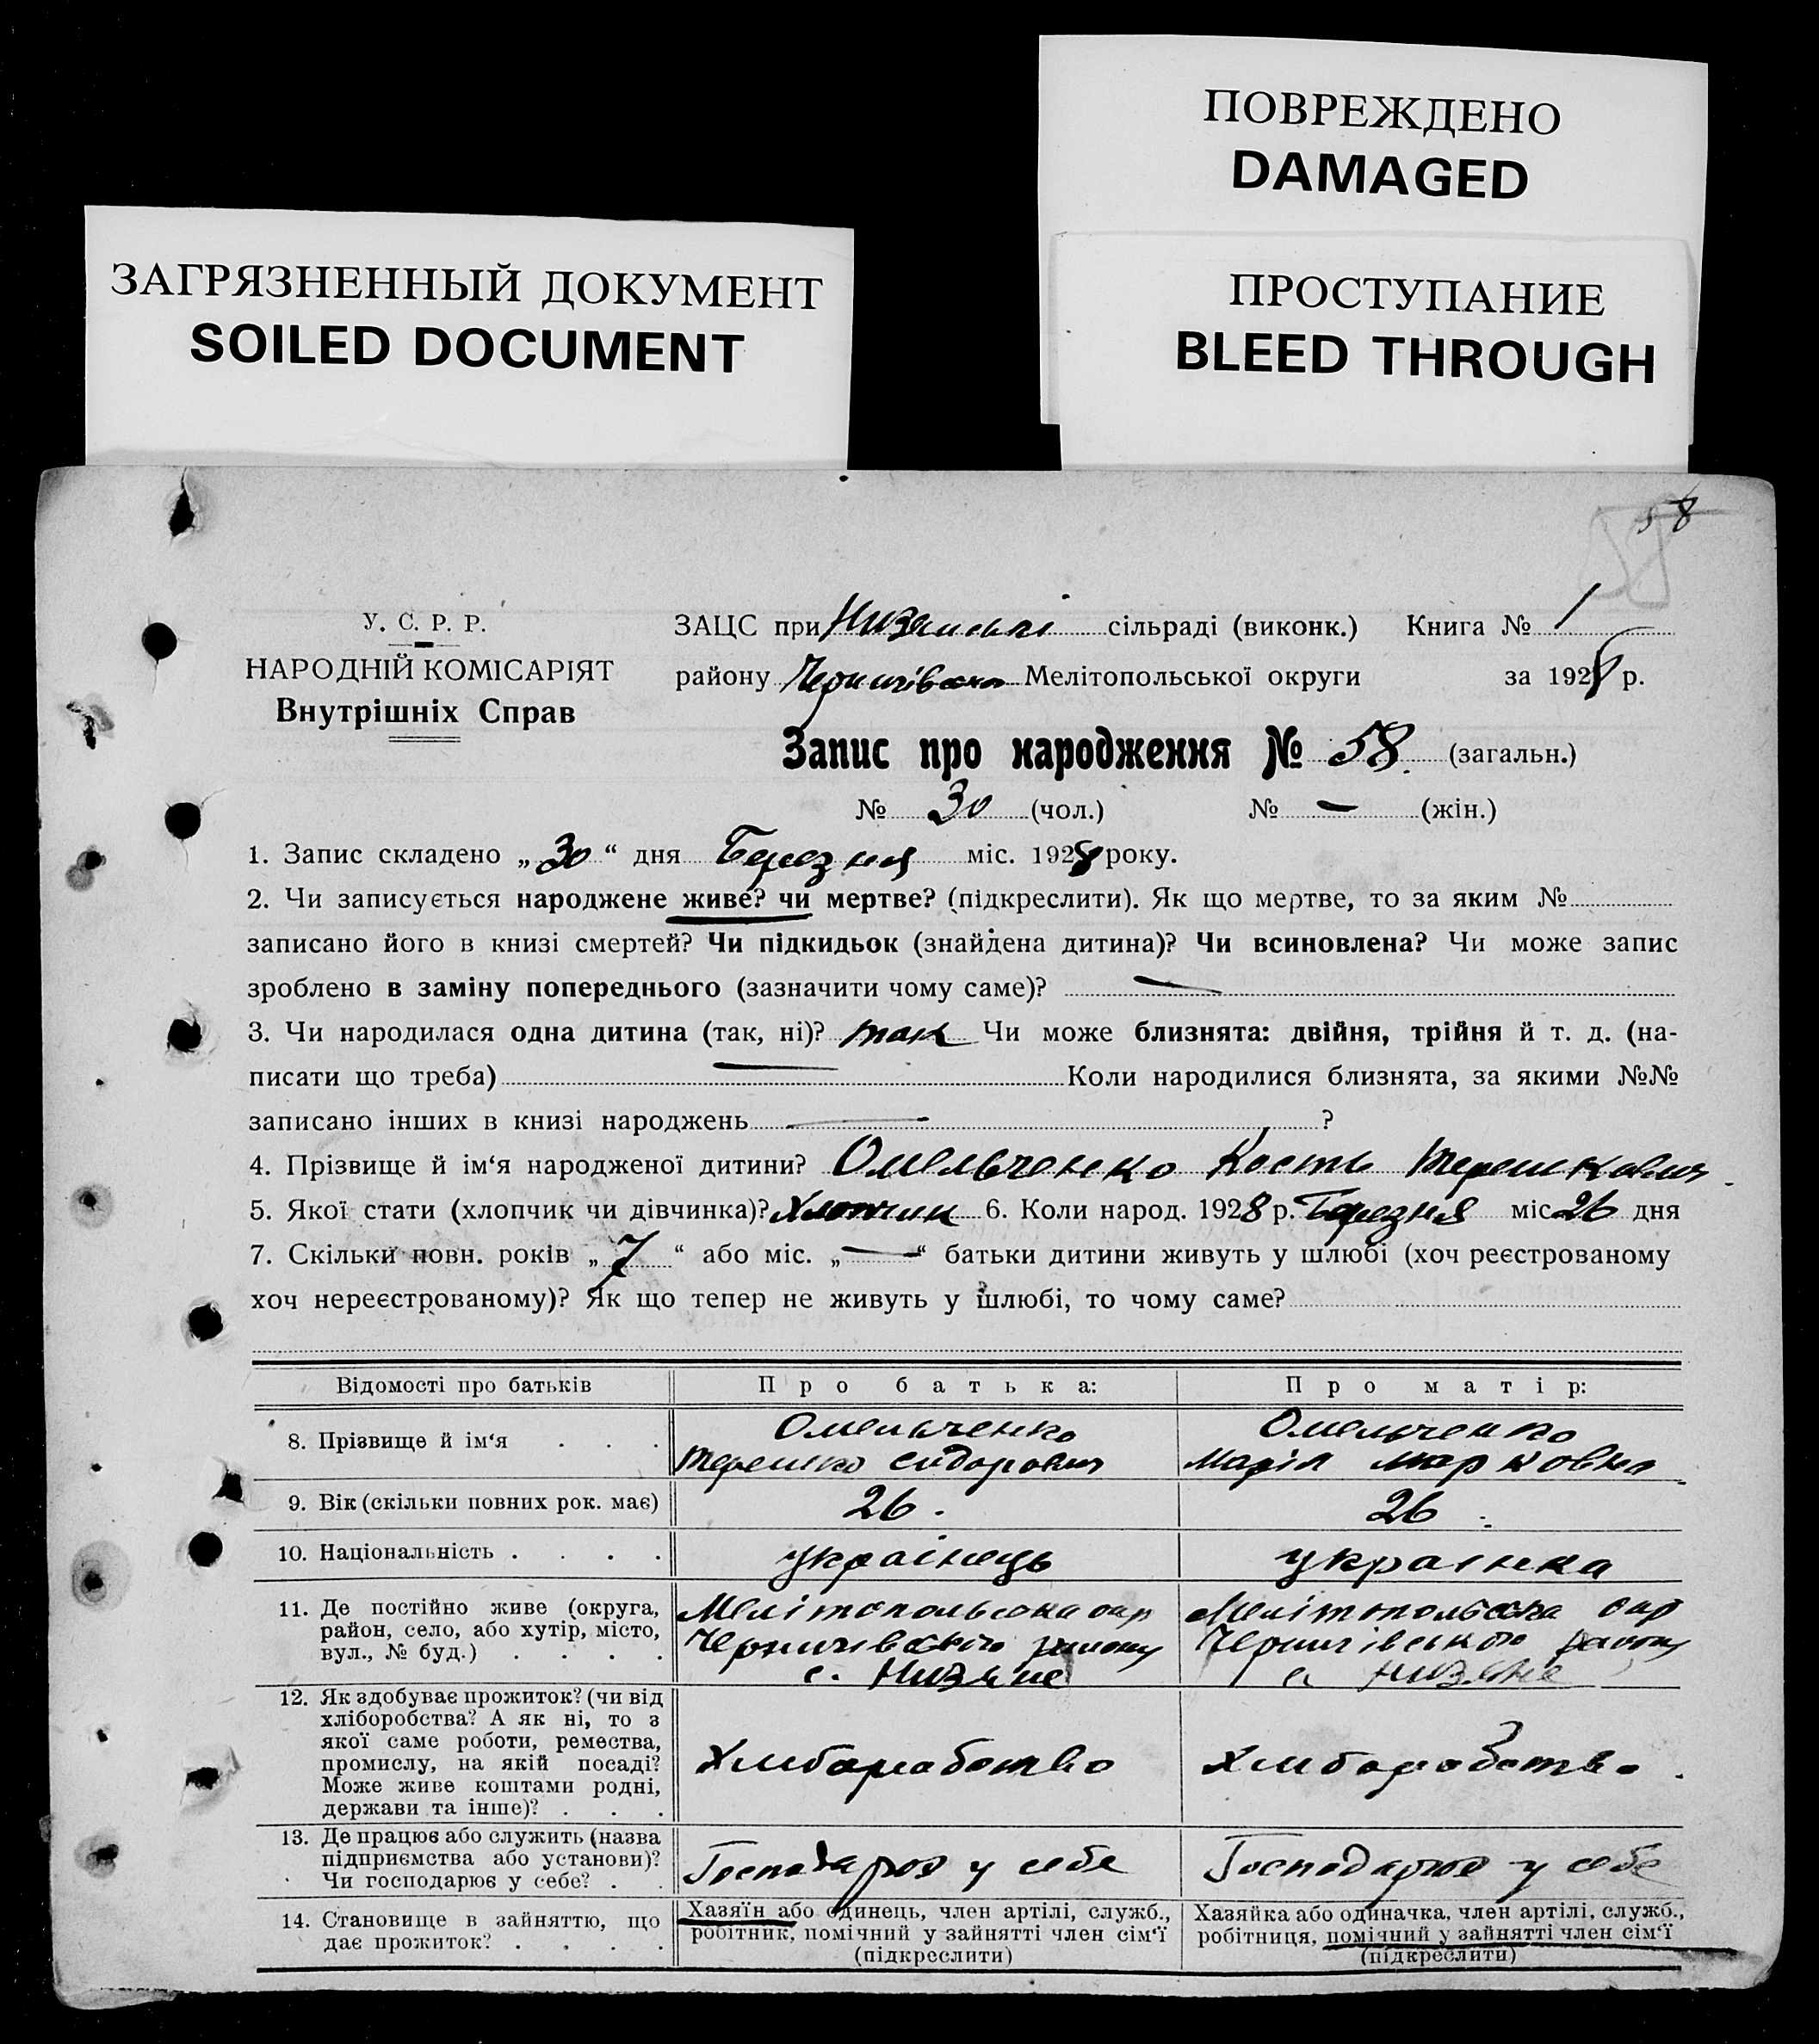 ПОВРЕЖДЕНО
DAMAGED
ЗАГРЯЗНЕННЫЙ ДОКУМЕНТ
SOILED DOCUMENT
ПРОСТУПАНИЕ
BLEED THROUGH
58
58
У. С. Р. Р.
НАРОДНІЙ КОМІСАРІЯТ
Внутрішніх Справ
ЗАЦС при Низянській сільраді (виконк.) Книга № 1
району Чернигівського Мелітопольської округи за 1928 р.
Запис про народження № 58. (загальн.)
№ 30 (чол.) № — (жін.)
1. Запис складено „30“ дня Березня міс. 1928 року.
2. Чи записується народжене живе? чи мертве? (підкреслити). Як що мертве, то за яким №
записано його в книзі смертей? Чи підкидьок (знайдена дитина)? Чи всиновлена? Чи може запис
зроблено в заміну попереднього (зазначити чому саме)? —
3. Чи народилася одна дитина (так, ні)? так Чи може близнята: двійня, трійня й т. д. (на-
писати що треба) — Коли народилися близнята, за якими №№
записано інших в книзі народжень — ?
4. Прізвище й ім‘я народженої дитини? Омельченко Кость Терешкович
5. Якої стати (хлопчик чи дівчинка)? Хлопчик 6. Коли народ. 1928 р. Березня міс 26 дня
7. Скільки повн. років „7“ або міс. „—“ батьки дитини живуть у шлюбі (хоч реєстрованому
хоч нереєстрованому)? Як що тепер не живуть у шлюбі, то чому саме?
Відомості про батьків Про батька: Про матір:
8. Прізвище й ім‘я . . .
Омельченко
Терешко Сидорович
Омельченко
Марія Марковна
9. Вік (скільки повних рок. має) 26. 26.
10. Національність . . . . українець українка
11. Де постійно живе (округа,
район, село, або хутір, місто,
вул., № буд.) . . . .
Мелітопольська окр
Чернигівського району
с. Низяне
Мелітопольська окр
Чернигівського району
с. Низяне
12. Як здобуває прожиток? (чи від
хліборобства? А як ні, то з
якої саме роботи, ремества,
промислу, на якій посаді?
Може живе коштами родні,
держави та інше)? . . .
Хлиборобство
Хлиборобство.
13. Де працює або служить (назва
підприємства або установи)?
Чи господарює у себе? . .
Господарює у себе
Господарює у себе
14. Становище в зайняттю, що
дає прожиток? . . . .
Хазяїн або одинець, член артілі, служб.,
робітник, помічний у зайнятті член сім‘ї
(підкреслити)
Хазяйка або одиначка, член артілі, служб.,
робітниця, помічний у зайнятті член сім‘ї
(підкреслити)